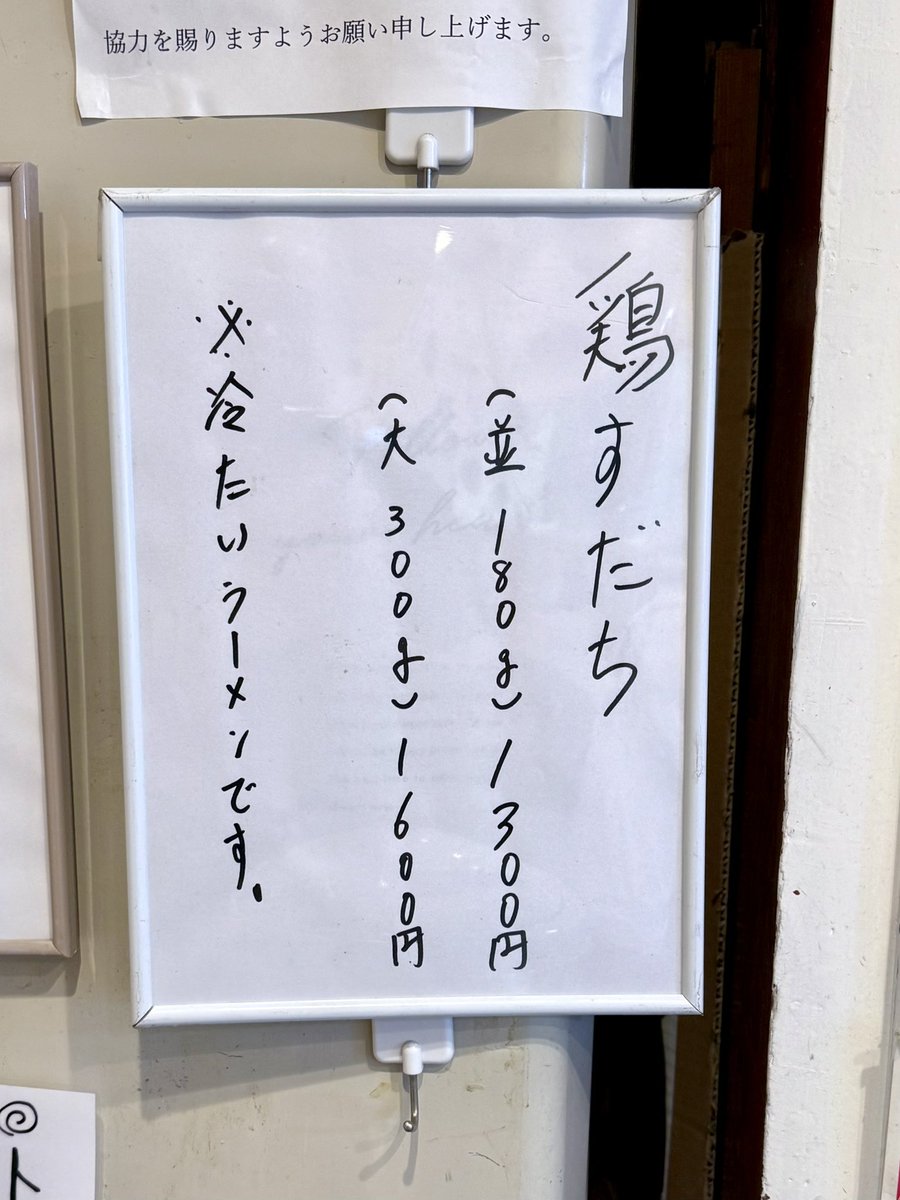 協力を賜りますようお願い申し上げます。
鶏すだち
(並 180g) 1300円
(大 300g) 1600円
※冷たいラーメンです。
◎
ト